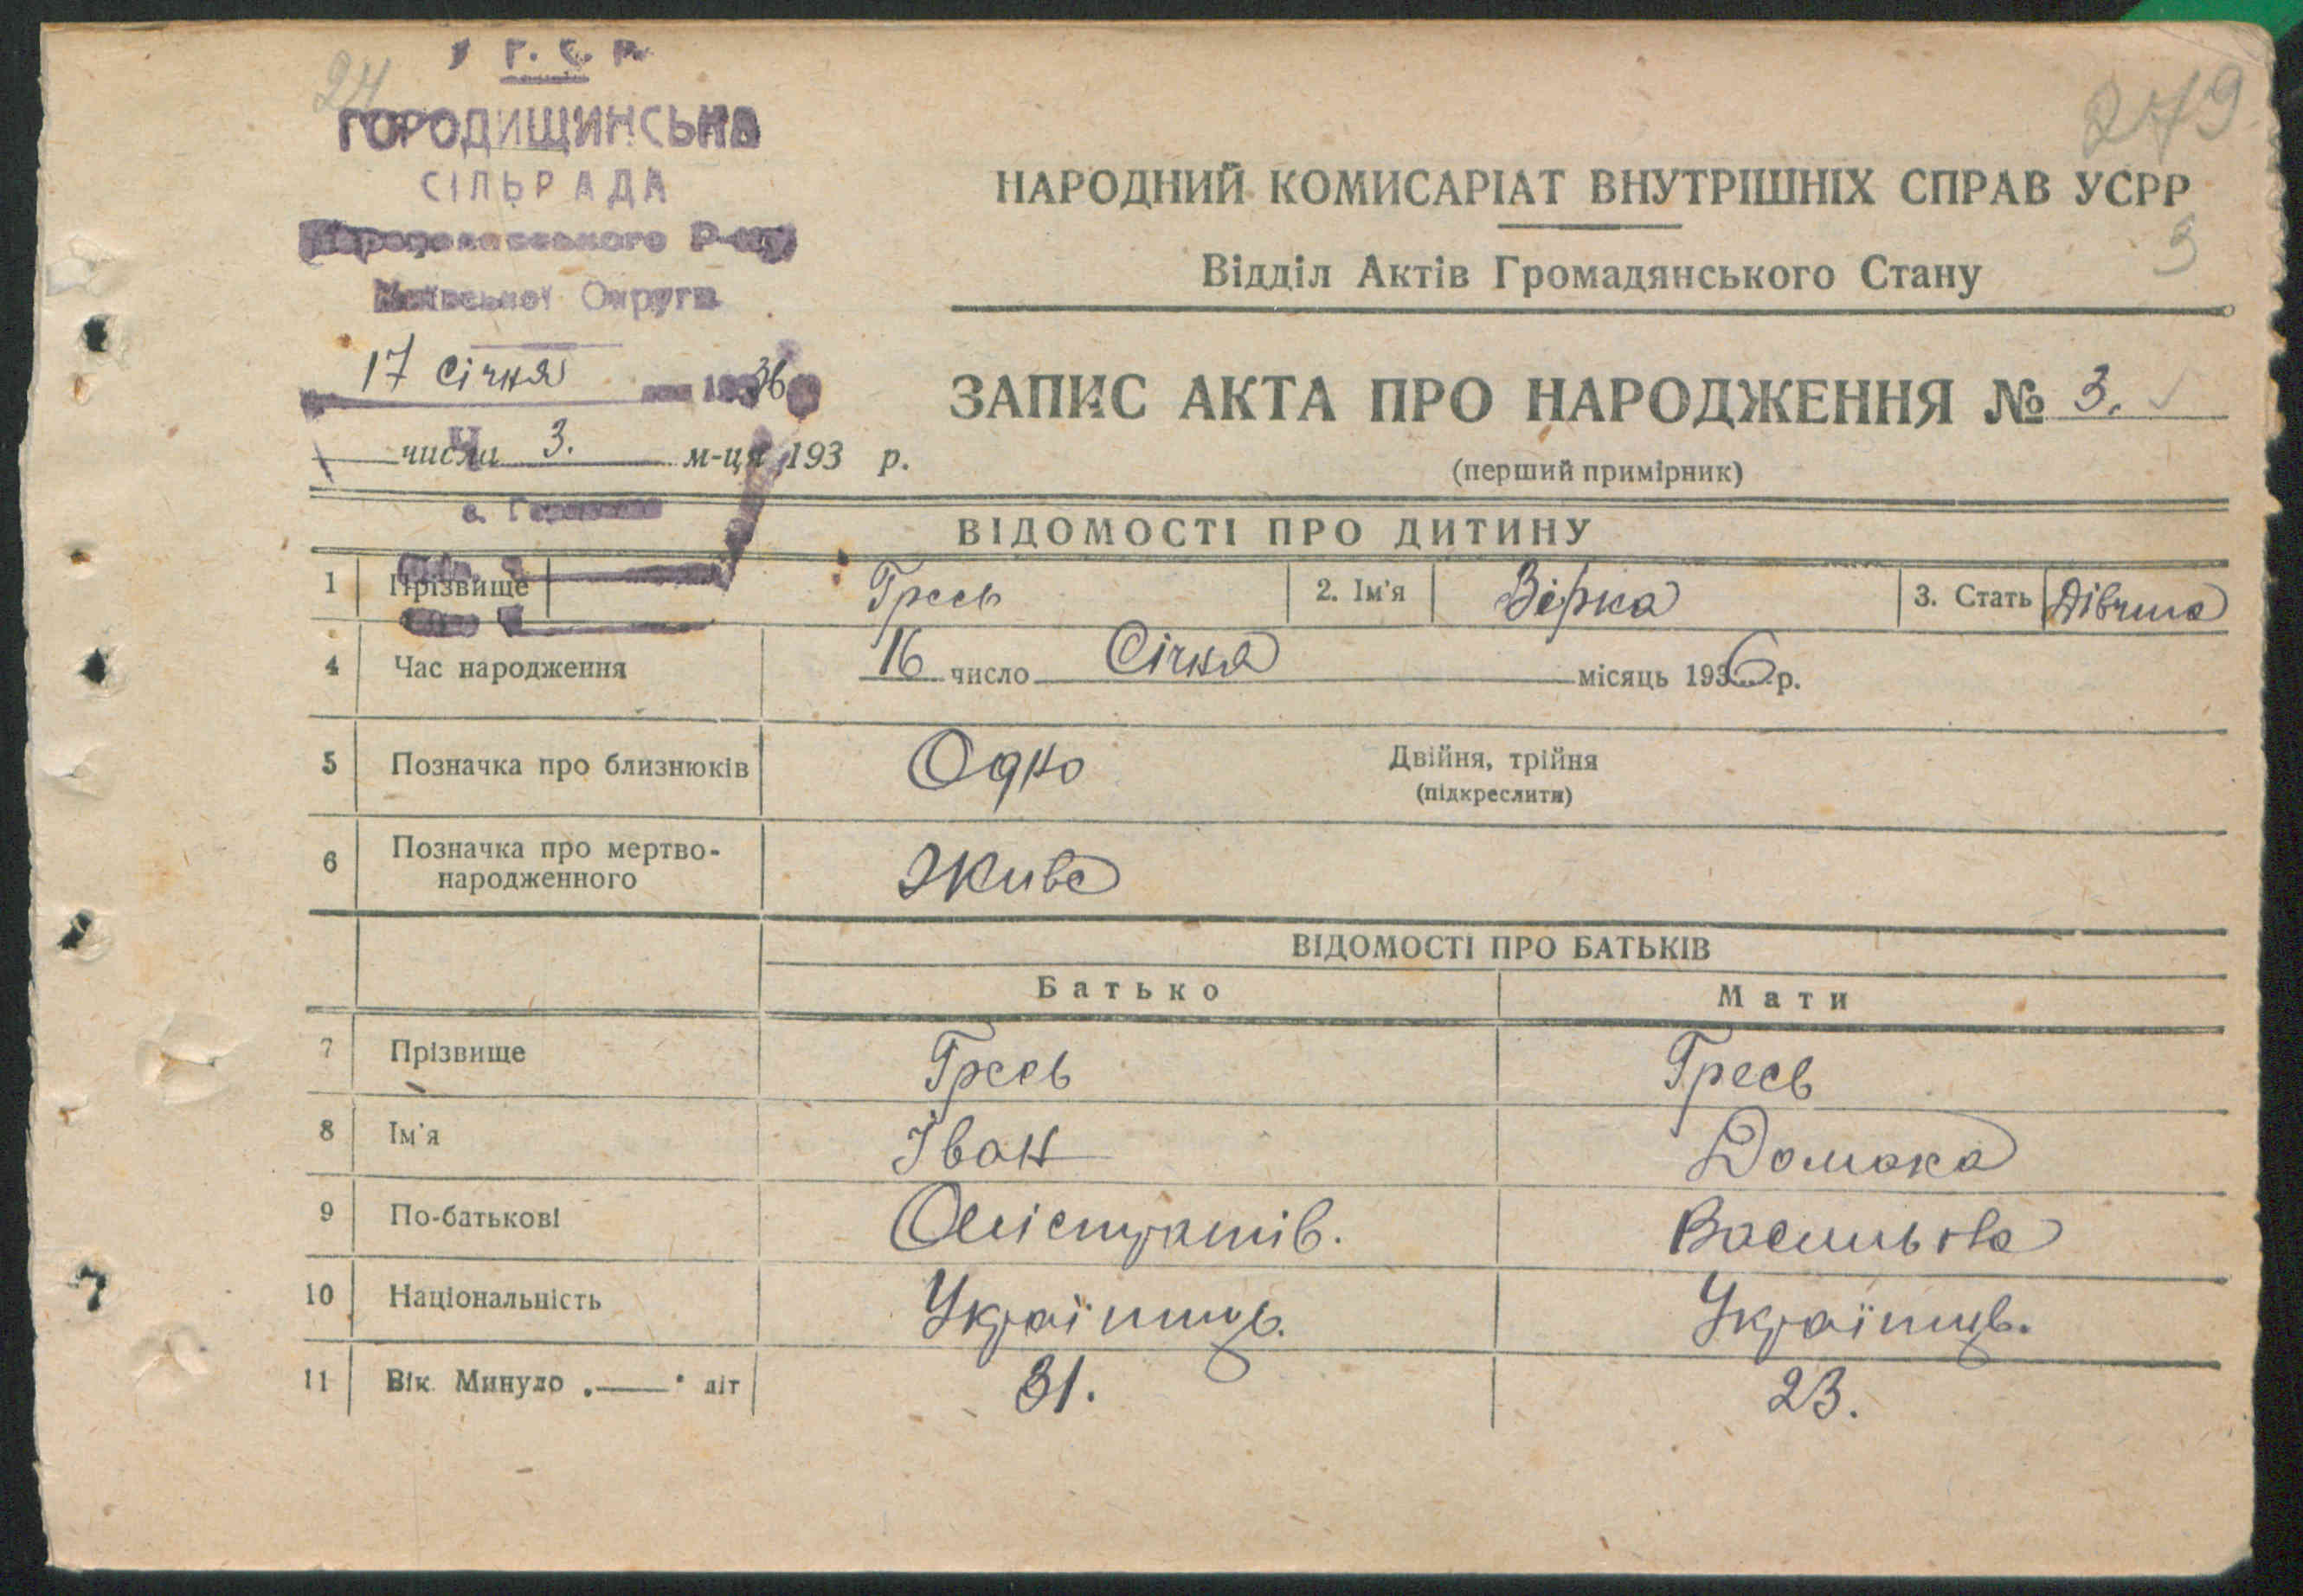 24
279
У С. Р. Р.
ГОРОДИЩИНСЬКА
СІЛЬРАДА
Р-ну
Київської Округи
НАРОДНИЙ КОМИСАРІАТ ВНУТРІШНІХ СПРАВ УСРР
3
Відділ Актів Громадянського Стану
17 Січня 1936
ЗАПИС АКТА ПРО НАРОДЖЕННЯ № 3.
числа 3. м-ця 193 р.
(перший примірник)
ВІДОМОСТІ ПРО ДИТИНУ
1 Прізвище Гресь 2. Ім'я Вірка 3. Стать Дівчина
4 Час народження 16 число Січня місяць 1936 р.
5 Позначка про близнюків Одно Двійня, трійня
(підкреслити)
6 Позначка про мертво-
народженного Живе
ВІДОМОСТІ ПРО БАТЬКІВ
Батько Мати
7 Прізвище Гресь Гресь
8 Ім'я Іван Домока
9 По-батькові Васильовна
10 Національність Українць. Українць.
11 Вік Минуло . — . літ 31. 23.